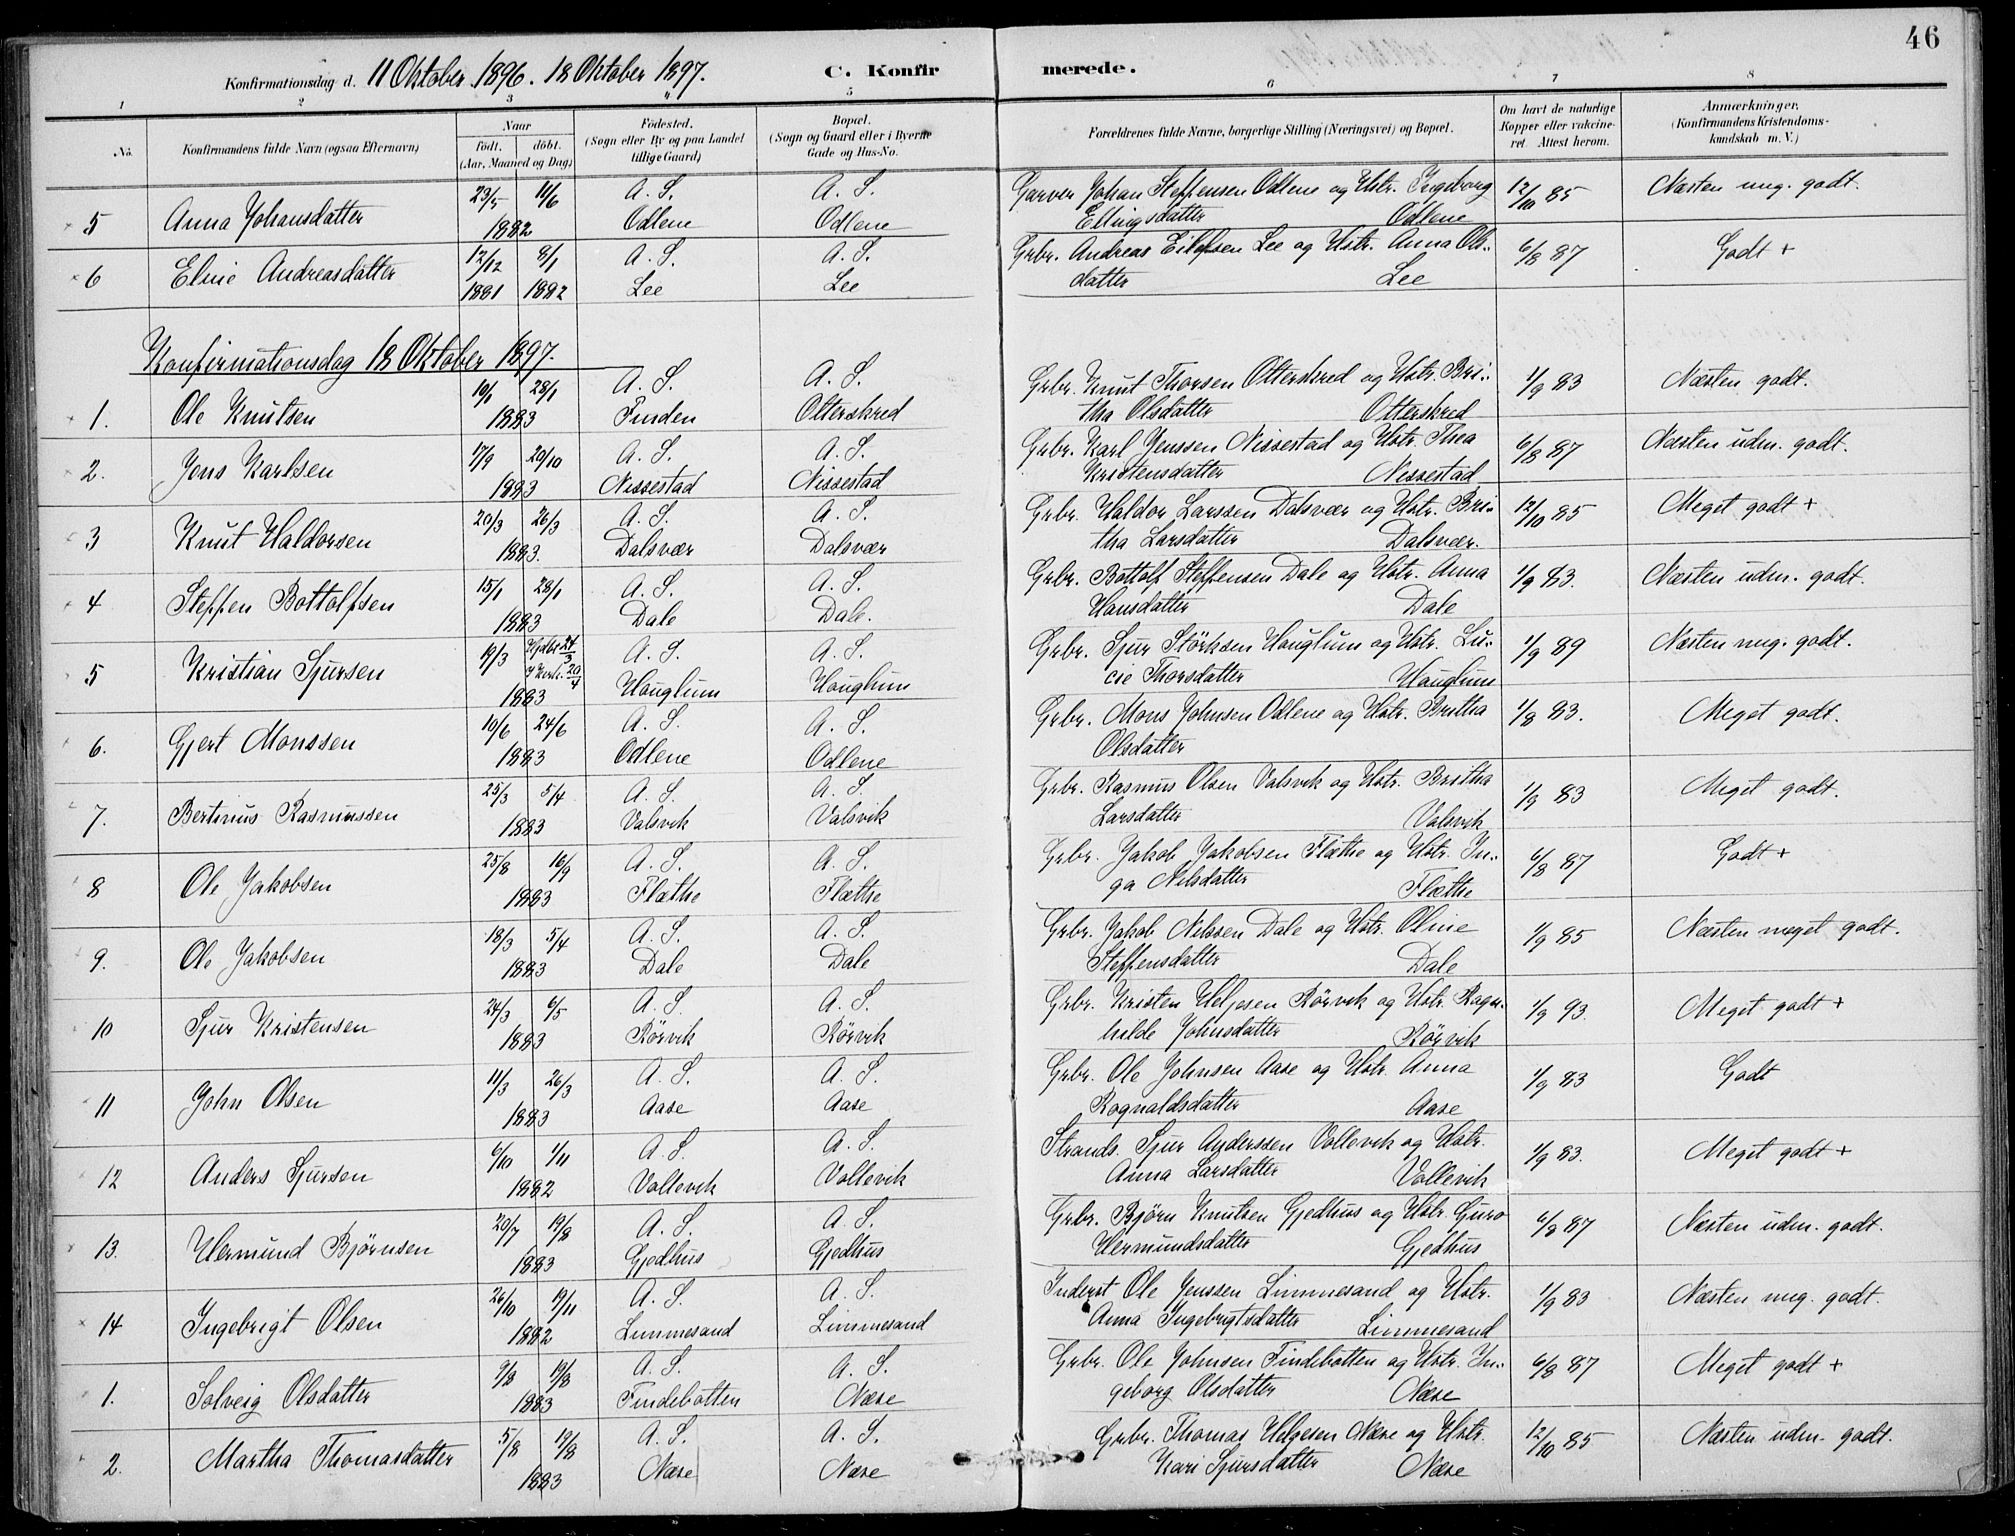 46
Konfirmationsdag d. 11 Oktober 1896. 18 Oktober 1897. C. Konfirmerede.
1 2 3 4 5 6 7 8
No. Konfirmandens fulde Navn (ogsaa Efternavn) Naar født. døbt. (Aar, Maaned og Dag) Fødested. (Sogn eller By og paa Landet tillige Gaard) Bopæl. (Sogn og Gaard eller i Byerne Gade og Hus-No. Forældrenes fulde Navne, borgerlige Stilling (Næringsvei) og Bopæl. Om havt de naturlige Kopper eller vakcineret. Attest herom. Anmærkninger. (Konfirmandens Kristendomskundskab m. V.)
5 Anna Johansdatter 23/5 11/6 A. S. A. S. Garver Johan Steffensen Odlene og Hstr. Ingeborg 12/10 85 Næsten mg. godt.
1882 Odlene Odlene Ellingsdatter Odlene
6 Eline Andreasdatter 12/12 8/1 A. S. A. S. Grbr. Andreas Eilefsen Lee og Hstr. Anna Ols- 6/8 87 Godt +
1881 1882 Lee Lee datter Lee
Konfirmationsdag 18 Oktober 1897.
1. Ole Knutsen 10/1 28/1 A. S. A. S. Grbr. Knut Thorsen Otterskred og Hstr. Bri- 1/9 83 Næsten godt.
1883 Finden Otterskred tha Olsdatter Otterskred
2. Jens Karlsen 17/9 20/10 A. S. A. S. Grbr. Karl Jenssen Nissestad og Hstr. Thea 6/8 87 Næsten udm. godt.
1883 Nissestad Nissestad Kristensdatter Nissestad
3 Knut Haldorsen 20/3 26/3 A. S. A. S. Grbr. Haldor Larssen Dalsvær og Hstr. Bri- 12/10 85 Meget godt +
1883. Dalsvær Dalsvær tha Larsdatter Dalsvær.
4 Steffen Bottolfsen 15/1 28/1 A. S. A. S. Grbr. Bottolf Steffensen Dale og Hstr. Anna 1/9 83. Næsten udm. godt.
1883 Dale Dale. Hansdatter Dale
5 Kristian Sjursen 19/3 Hjdbt 24/3 A. S. A. S. Grbr. Sjur Størksen Hauglum og Hstr. Lu- 1/9 89 Næsten mg. godt.
20/4 1883 Hauglum Hauglum cie Thorsdatter Hauglum
6. Gjert Monssen 10/6 24/6 A. S. A. S. Grbr. Mons Johnsen Odlene og Hstr. Britha 1/8 83. Meget godt.
1883 Odlene Odlene Olsdatter
7. Bertinus Rasmussen 25/3 5/4 A. S. A. S. Grbr. Rasmus Olsen Valsvik og Hstr. Britha 1/9 83 Meget godt.
1883 Valsvik Valsvik Larsdatter Valsvik
8 Ole Jakobsen 25/8 16/9 A. S. A. S. Grbr. Jakob Jakobsen Flæthe og Hstr. In- 6/8 87 Godt +
1883 Flæthe Flæthe ga Nilsdatter Flæthe
9. Ole Jakobsen 18/3 5/4 A. S. A. S. Grbr. Jakob Nilssen Dale og Hstr. Oline 1/9 85 Næsten meget godt.
1883 Dale Dale Steffensdatter Dale
10 Sjur Kristensen 24/3 6/5 A. S. A. S. Grbr. Kristen Helgesen Rørvik og Hstr. Ragn- 1/9 93. Meget godt +
1883 Rørvik Rørvik hilde Johnsdatter Rørvik
11 John Olsen 11/3 26/3 A. S. A. S. Grbr. Ole Johnsen Aase og Hstr. Anna 1/9 83 Godt
1883 Aase Aase Rognaldsdatter Aase
12 Anders Sjursen 6/10 1/11 A. S. A. S. Strands. Sjur Anderssen Vollevik og Hstr. 1/9 83. Meget godt +
1882 Vollevik Vollevik Anna Larsdatter Vollevik
13. Hermund Bjørnsen 20/7 19/8 A. S. A. S. Grbr. Bjørn Knutsen Gjedhus og Hstr. Guro 6/8 87 Næsten udm. godt.
1883 Gjedhus Gjedhus Hermundsdatter Gjedhus
14 Ingebrigt Olsen 26/10 19/11 A. S. A. S. Inderst Ole Jenssen Limmesand og Hstr. 1/9 83 Næsten mg. godt.
1882 Limmesand Limmesand Anna Ingebrigtsdatter Limmesand
1. Solveig Olsdatter 9/8 19/8 A. S. A. S. Grbr. Ole Johnsen Findebotten og Hstr. In- 6/8 87 Meget godt +
1883 Findebotten Næse geborg Olsdatter Næse
2. Martha Thomasdatter 5/8 19/8 A. S. A. S. Grbr. Thomas Helgesen Næse og Hstr. 12/10 85 Næsten udm. godt.
1883 Næse Næse Kari Sjursdatter Næse